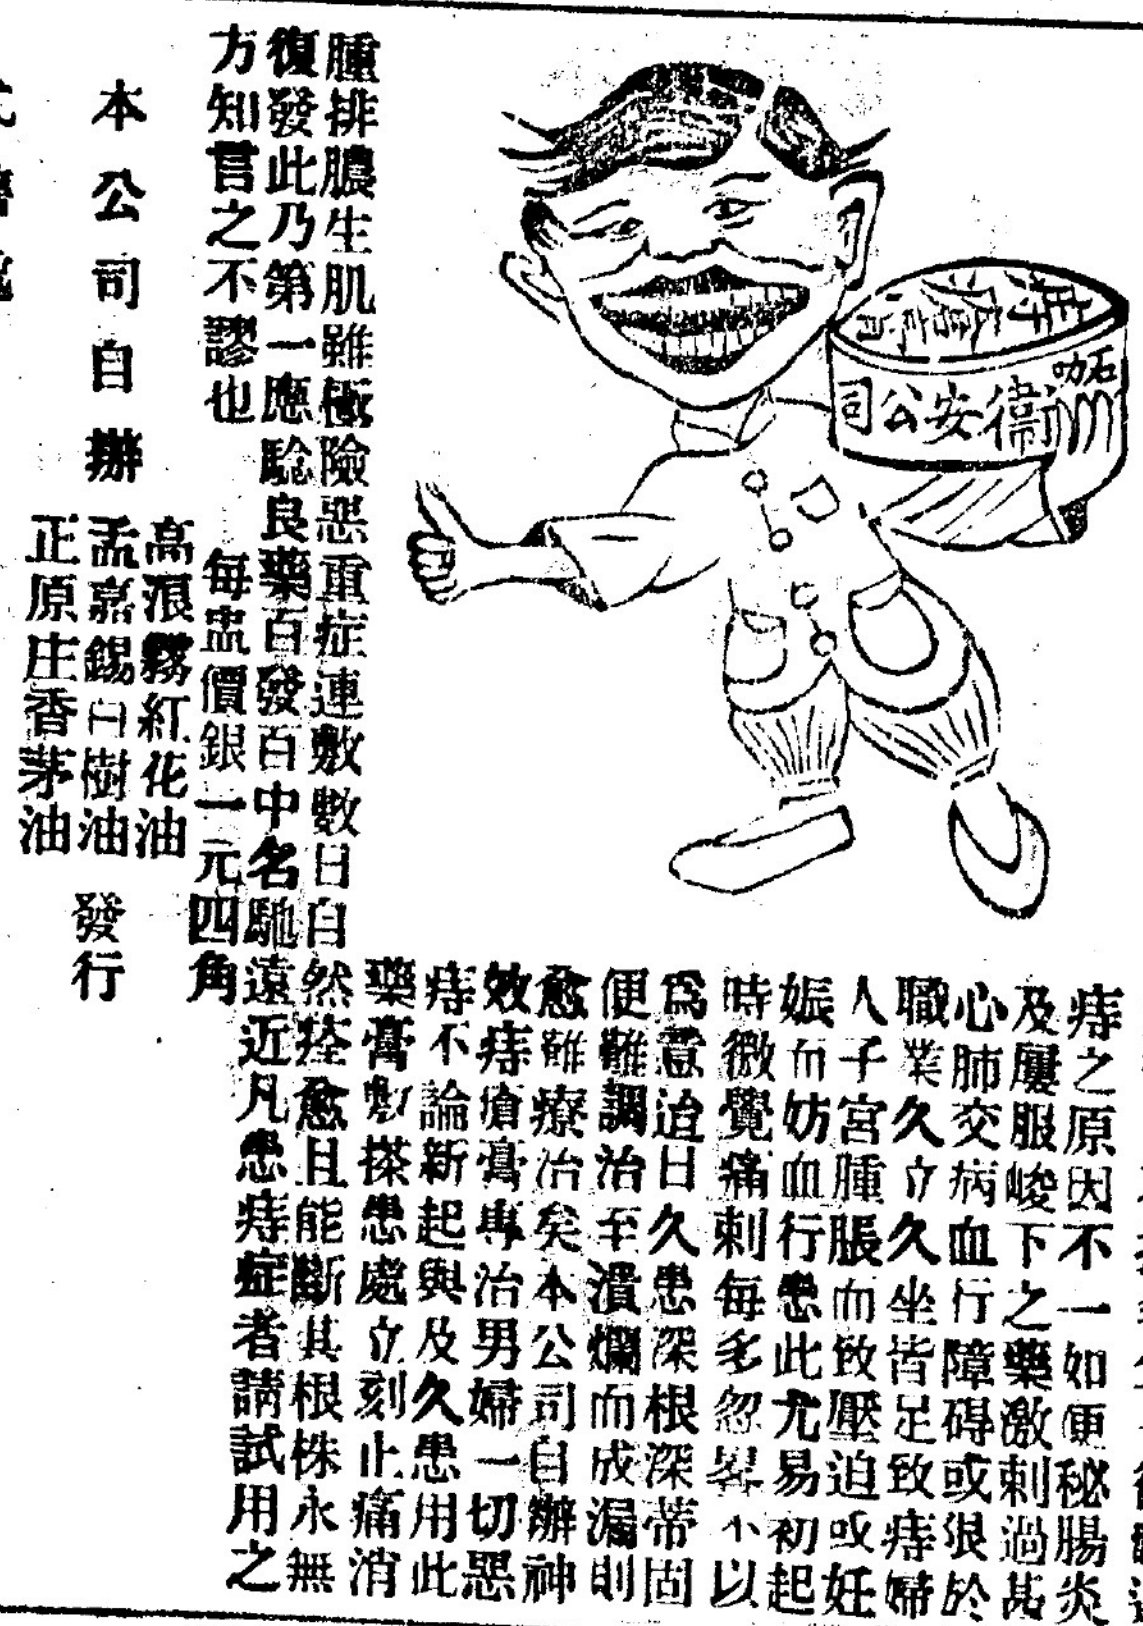 痔瘡膏
石叻衛安公司
痔之原因不一如便秘腸炎
及屢服峻下之藥激刺過甚
心肺交病血行障碍或限於
職業久立久坐皆足致痔婦
人子宮腫脹而致壓迫或妊
娠而妨血行患此尤易初起
時微覺痛刺每多忽畧不以
爲意迨日久患深根深蒂固
便難調治至潰爛而成漏則
愈難療治矣本公司自辦神
效痔瘡膏專治男婦一切惡
痔不論新起與及久患用此
藥膏敷搽患處立刻止痛消
腫排膿生肌雖極險惡重症連敷數日自然痊愈且能斷其根株永無
復發此乃第一應驗良藥百發百中名馳遠近凡患痔症者請試用之
方知言之不謬也 每盅價銀一元四角
本公司自辦
高浪霧紅花油
孟嘉錫白樹油
正原庄香茅油
發行